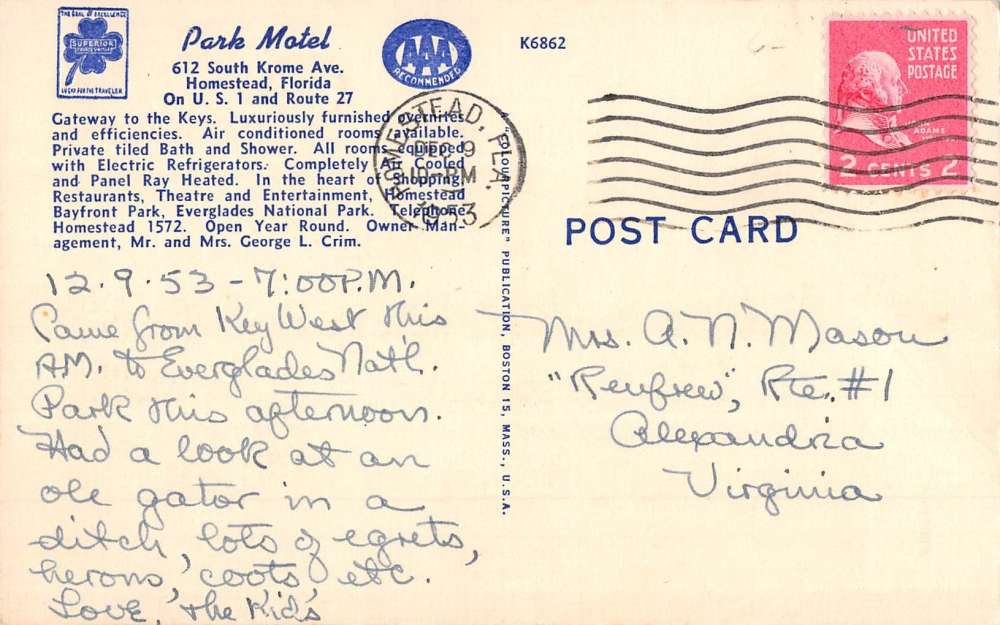 THE SEAL OF EXCELLENCE
SUPERIOR
LUCKY FOR THE TRAVELER
Park Motel
612 South Krome Ave.
Homestead, Florida
On U. S. 1 and Route 27
AAA
RECOMMENDED
K6862
Gateway to the Keys. Luxuriously furnished overnites
and efficiencies. Air conditioned rooms available.
Private tiled Bath and Shower. All rooms equipped
with Electric Refrigerators. Completely Air Cooled
and Panel Ray Heated. In the heart of Shopping,
Restaurants, Theatre and Entertainment, Homestead
Bayfront Park, Everglades National Park. Telephone
Homestead 1572. Open Year Round. Owner Man-
agement, Mr. and Mrs. George L. Crim.
HOMESTEAD, FLA.
DEC 9
10-PM
1953
12.9.53 - 7:00P.M.
Came from Key West this
AM. to Everglades Nat'l.
Park this afternoon.
Had a look at an
ole gator in a
ditch, lots of egrets,
herons, coots, etc.
Love, the Kids
"COLOURPICTURE" PUBLICATION, BOSTON 15, MASS., U.S.A.
UNITED
STATES
POSTAGE
ADAMS
2 CENTS 2
POST CARD
Mrs. A. N. Mason
"Renfrew", Rte. #1
Alexandria
Virginia